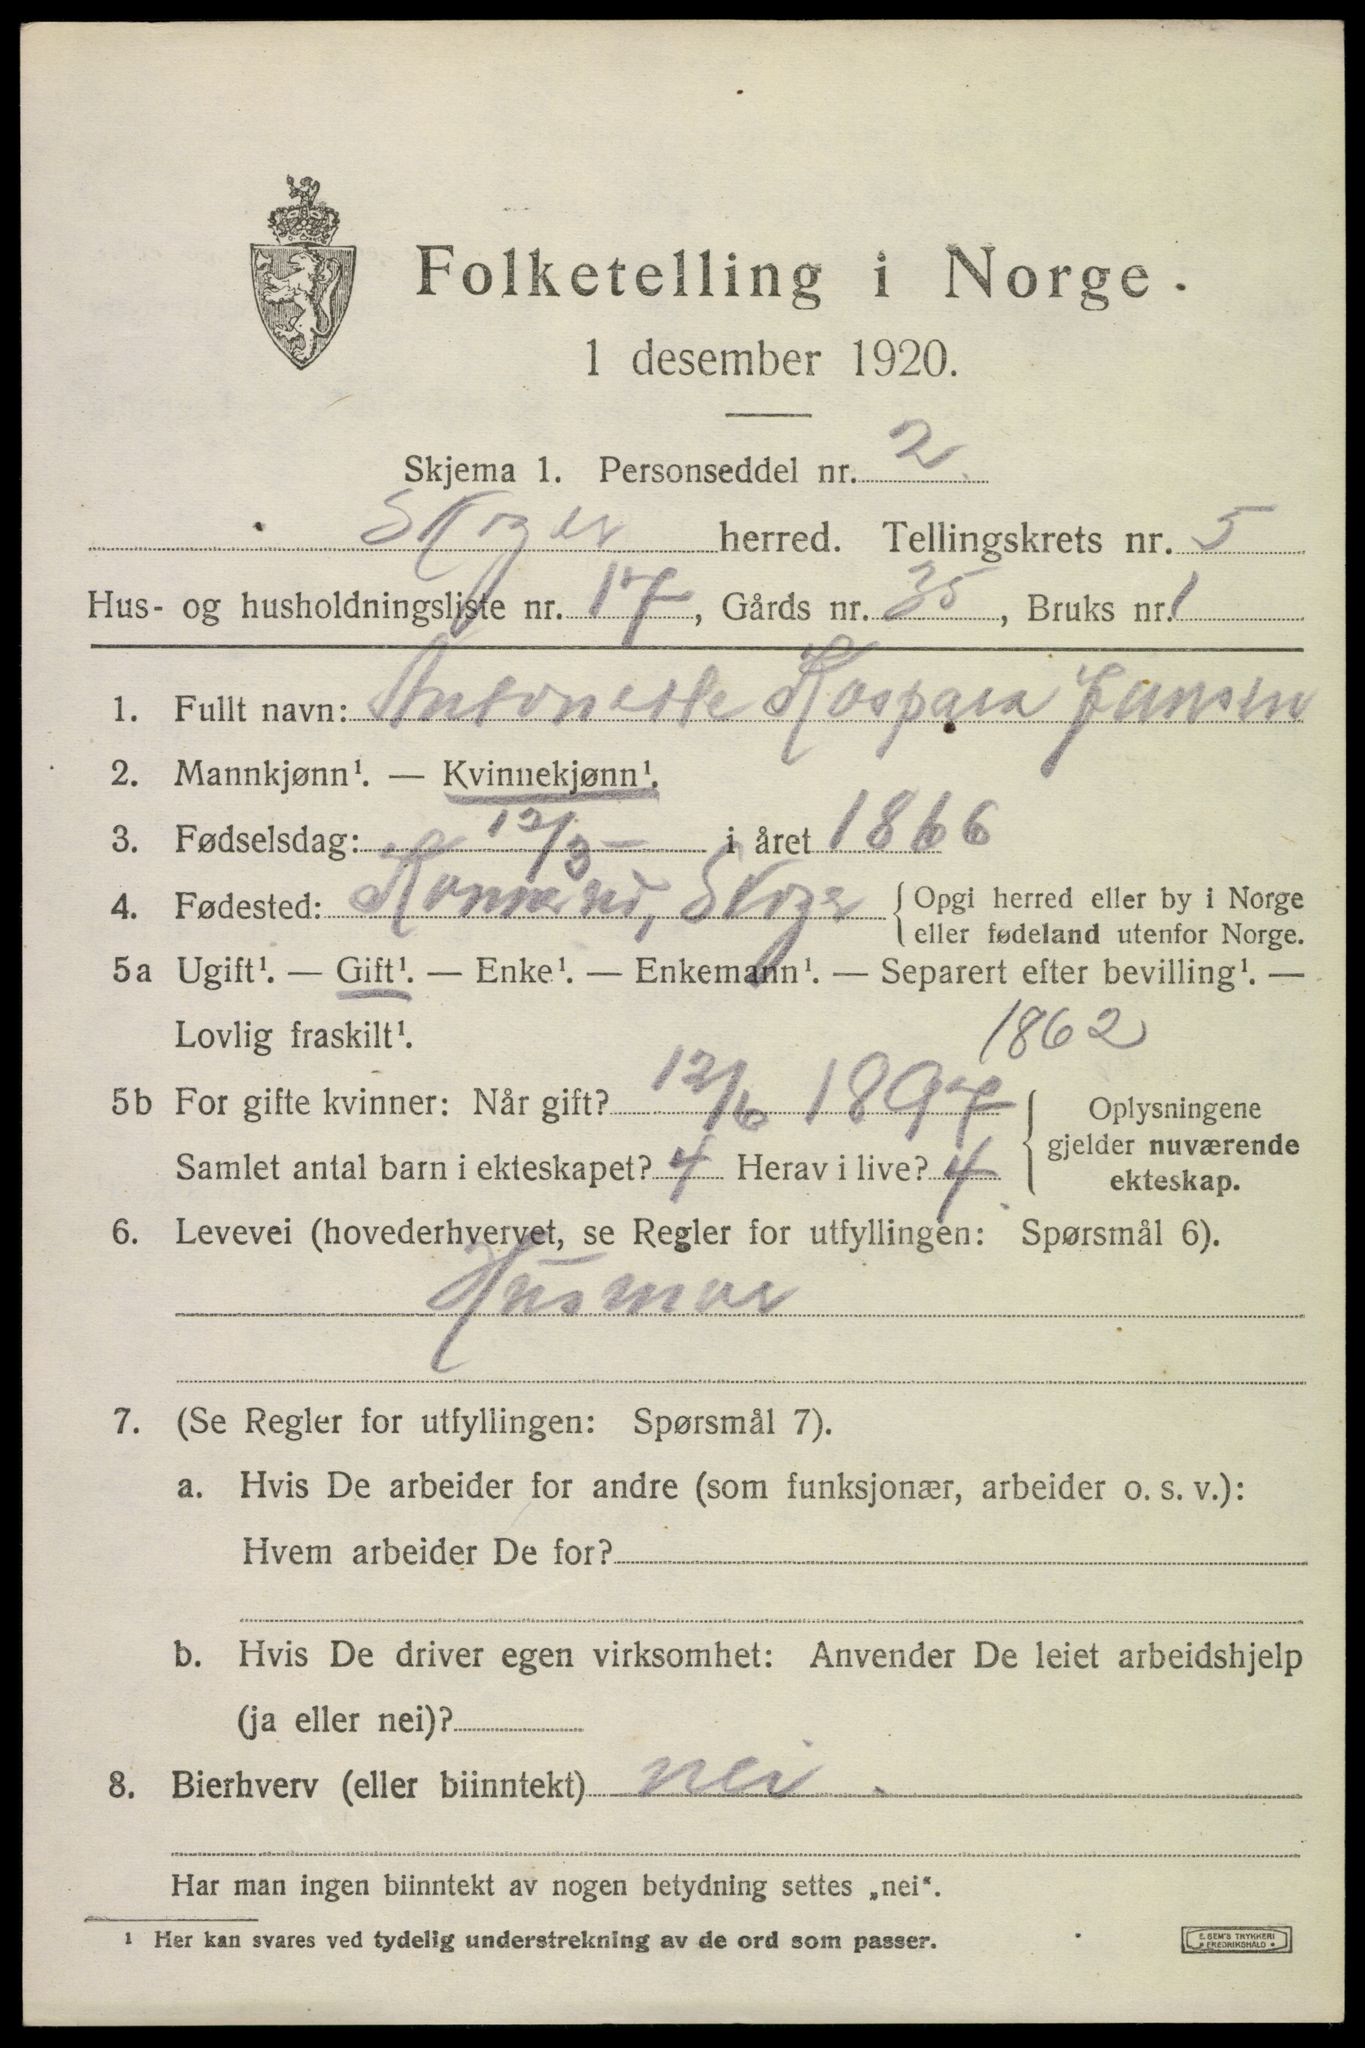 Folketelling i Norge.
1 desember 1920.
Skjema 1. Personseddel nr. 2
Skoger herred. Tellingskrets nr. 5
Hus- og husholdningsliste nr. 17, Gårds nr. 35, Bruks nr. 1
1. Fullt navn: Antonette Kaspara Jansen
2. Mannkjønn¹. — Kvinnekjønn¹.
3. Fødselsdag: 12/3 – i året 1866
4. Fødested: Konnerud, Skoger { Opgi herred eller by i Norge
eller fødeland utenfor Norge.
5a Ugift¹. — Gift¹. — Enke¹. — Enkemann¹. — Separert efter bevilling¹. —
Lovlig fraskilt¹.
1862
5b For gifte kvinner: Når gift? 12/6 1897 { Oplysningene
gjelder nuværende
Samlet antal barn i ekteskapet? 4 Herav i live? 4
ekteskap.
6. Levevei (hovederhvervet, se Regler for utfyllingen: Spørsmål 6).
Husmor
7. (Se Regler for utfyllingen: Spørsmål 7).
a. Hvis De arbeider for andre (som funksjonær, arbeider o. s. v.):
Hvem arbeider De for?
b. Hvis De driver egen virksomhet: Anvender De leiet arbeidshjelp
(ja eller nei)?
8. Bierhverv (eller biinntekt) nei.
Har man ingen biinntekt av nogen betydning settes „nei“.
¹ Her kan svares ved tydelig understrekning av de ord som passer.
E. SEM'S TRYKKERI
• FREDRIKSHALD •